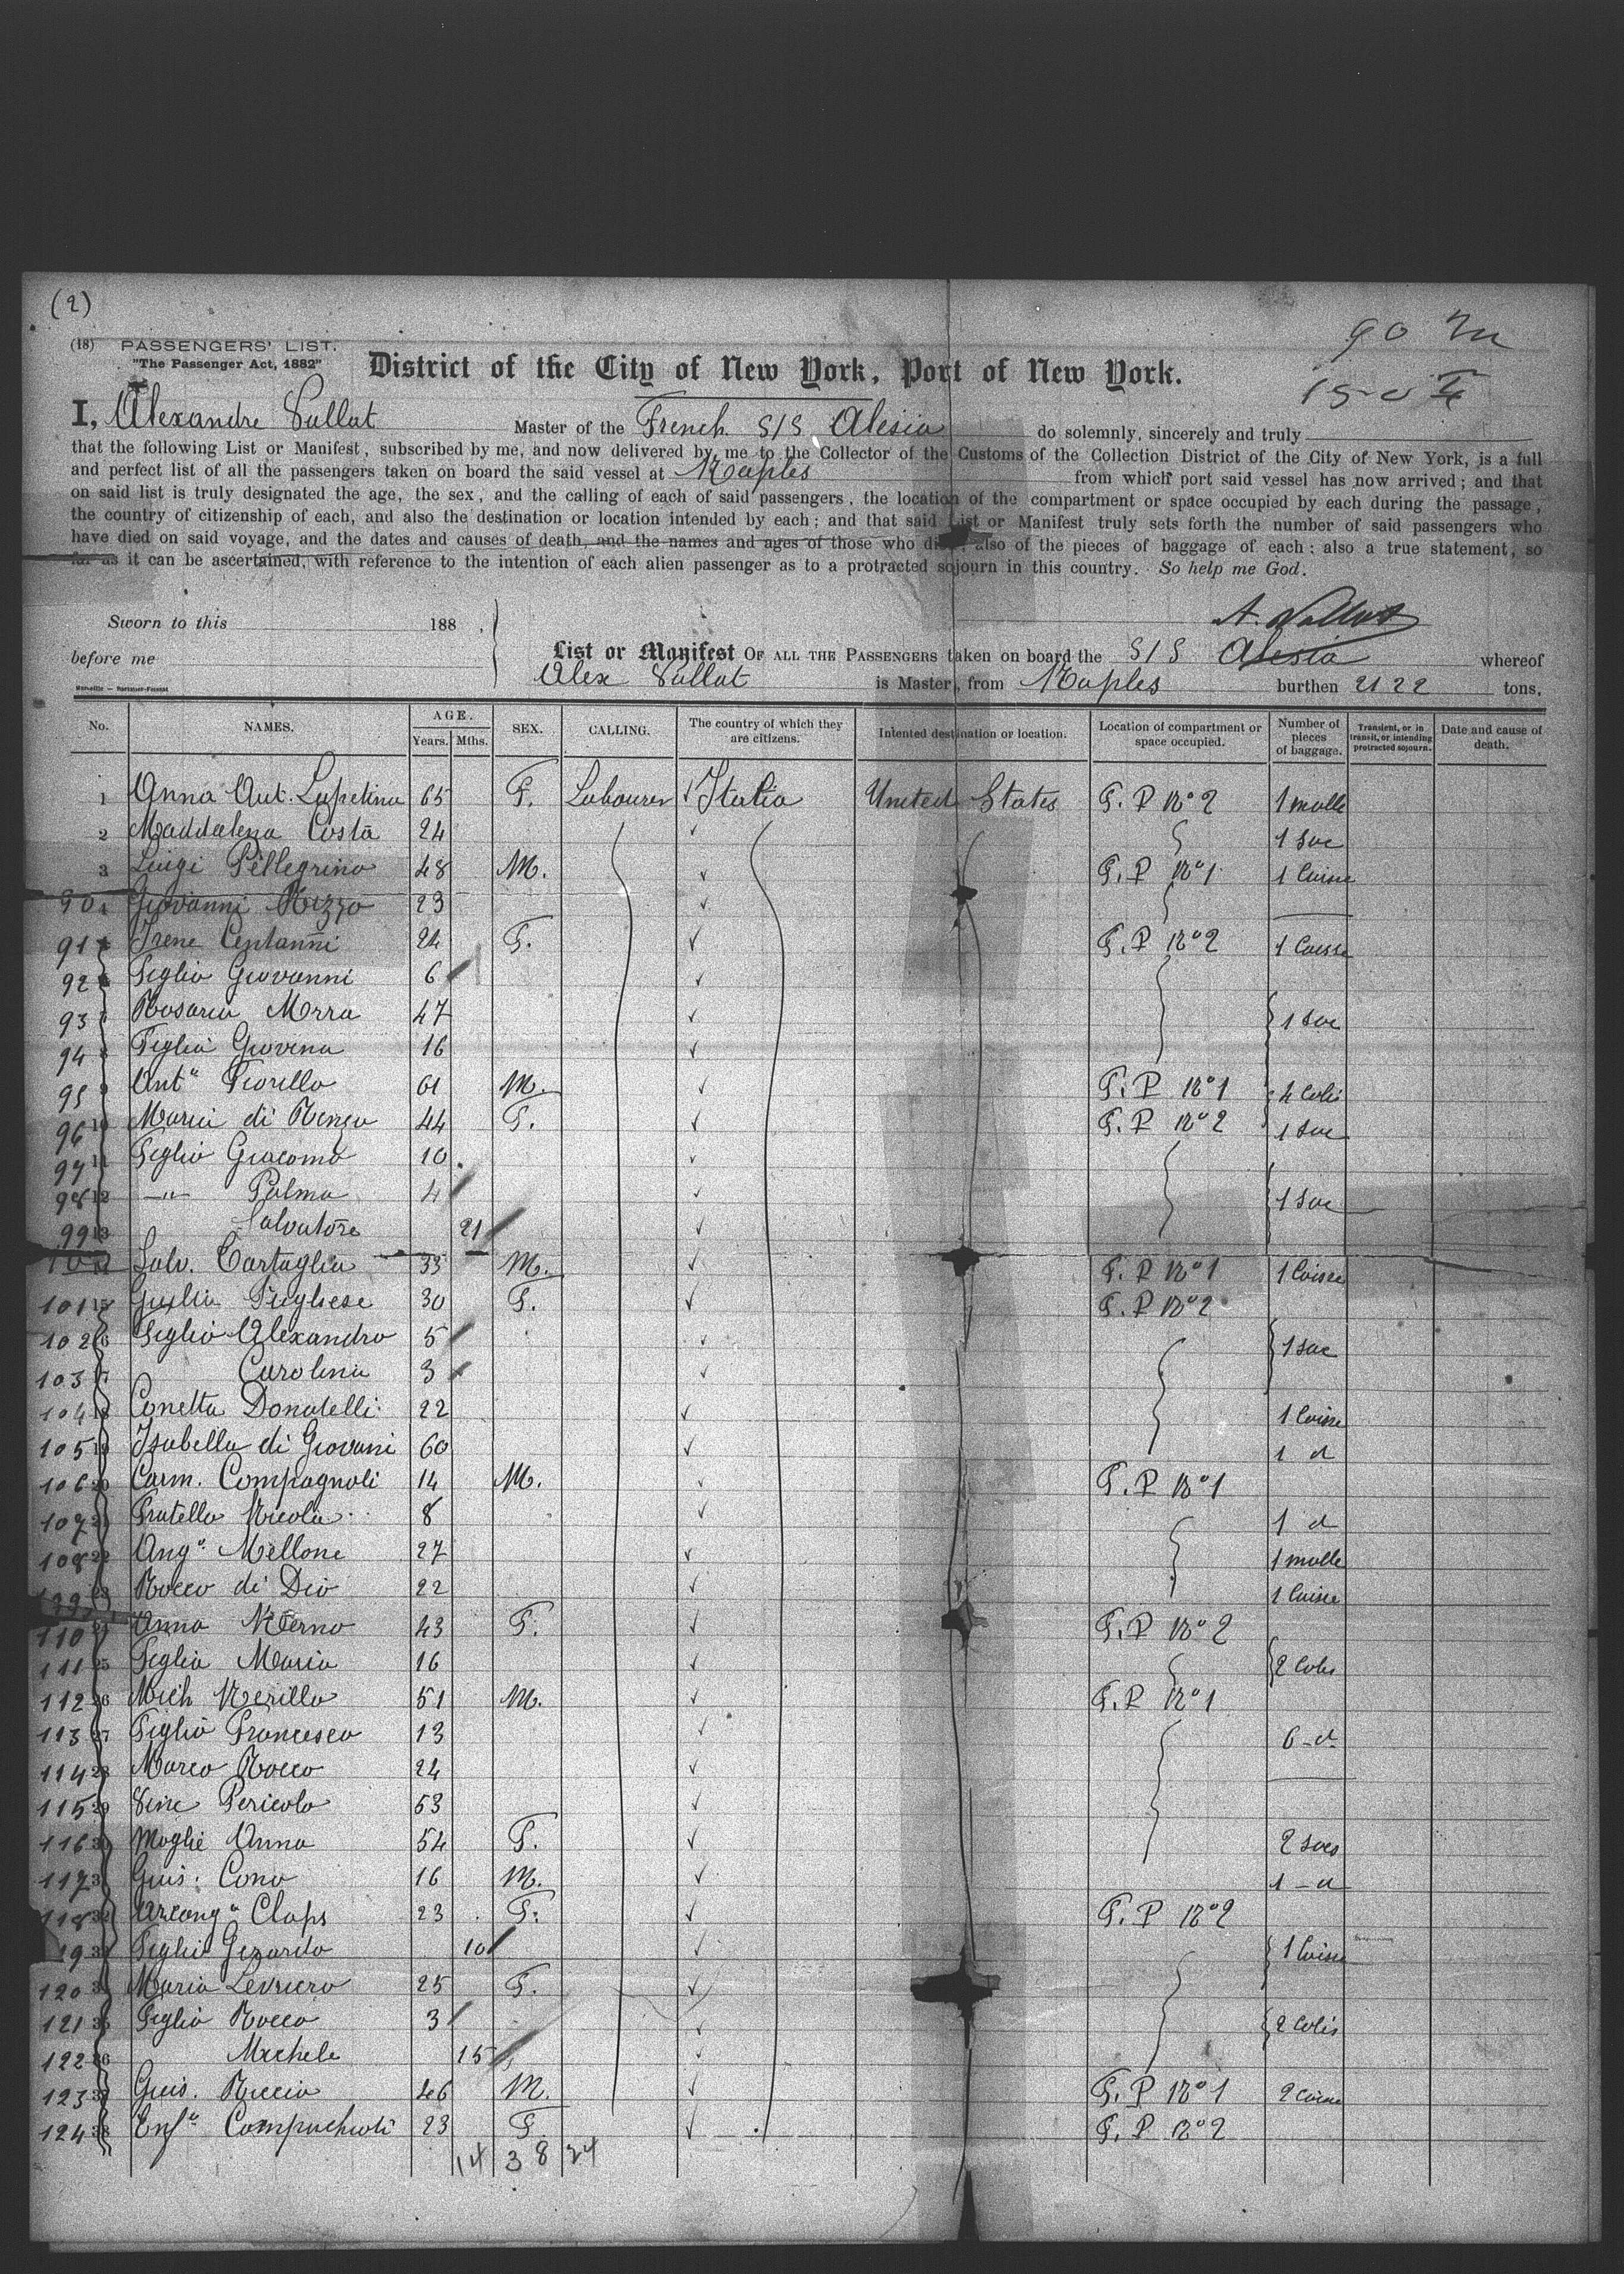 (2)
90 M
(18) PASSENGERS' LIST.
"The Passenger Act, 1882"
District of the City of New York, Port of New York.
I, Alexandre Vallat Master of the French S/S Alesia do solemnly, sincerely and truly
that the following List or Manifest, subscribed by me, and now delivered by me to the Collector of the Customs of the Collection District of the City of New York, is a full
and perfect list of all the passengers taken on board the said vessel at Naples from which port said vessel has now arrived; and that
on said list is truly designated the age, the sex, and the calling of each of said passengers, the location of the compartment or space occupied by each during the passage,
the country of citizenship of each, and also the destination or location intended by each; and that said List or Manifest truly sets forth the number of said passengers who
have died on said voyage, and the dates and causes of death, and the names and ages of those who died; also of the pieces of baggage of each: also a true statement, so
far as it can be ascertained, with reference to the intention of each alien passenger as to a protracted sojourn in this country. So help me God.
A. Vallat
Sworn to this 188 ,
before me
List or Manifest OF ALL THE PASSENGERS taken on board the S/S Alesia whereof
Alex Vallat is Master, from Naples burthen 2122 tons.
No. NAMES. AGE. Years. Mths. SEX. CALLING. The country of which they are citizens. Intented destination or location. Location of compartment or space occupied. Number of pieces of baggage. Transient, or in transit, or intending protracted sojourn. Date and cause of death.
1 Anna Ant. Lupetina 65 F. Labourer Italia United States F. P No 2 1 malle
2 Maddalena Costa 24 1 Sac
3 Luigi Pellegrino 48 M. F. P No 1 1 Caisse
90 Giovanni Rizzo 23
91 Irene Centanni 24 F. F. P No 2 1 Caisse
92 Figlio Giovanni 6
93 Rosaria Merra 47 1 Sac
94 Figlia Giovena 16
95 Anto Fiorillo 61 M. F. P No 1 4 Colis
96 10 Maria di Renzo 44 F. F. P No 2 1 Sac
97 11 Figlio Giacomo 10
98 12 —"— Palma 4 1 Sac
99 13 Salvatore 21
Salv. Cartaglia 33 M. F. P No 1 1 Caisse
101 15 Giulia Pugliese 30 F. F. P No 2
102 Figlio Alexandro 5 1 Sac
103 Carolina 3
104 Conetta Donatelli 22 1 Caisse
105 Isabella di Giovani 60 1 d
106 Carm. Compagnoli 14 M. F. P No 1
107 Fratello Nicola 8 1 d
108 22 Ango Mellone 27 1 malle
Rocco di Dio 22 1 Caisse
110 Anna Nierno 43 F. F. P No 2
111 25 Figlia Maria 16 2 Colis
112 26 Mich Nerillo 51 M. F. P No 1
113 27 Figlio Francesco 13 6 - d
114 28 Marco Rocco 24
115 29 Vinc Pericolo 53
116 Moglie Anna 54 F. 2 Sacs
117 Guis. Cono 16 M. 1 - d
118 32 Arcanga Claps 23 F. F. P No 2
19 Figlio Gerardo 10 1 Caisse
120 Maria Levriero 25 F.
121 Figlio Rocco 3 2 Colis
122 36 Michele 15
123 Guis. Riccio 46 M. F. P No 1 2 Caisse
124 38 F. F. P No 2
14 38 24